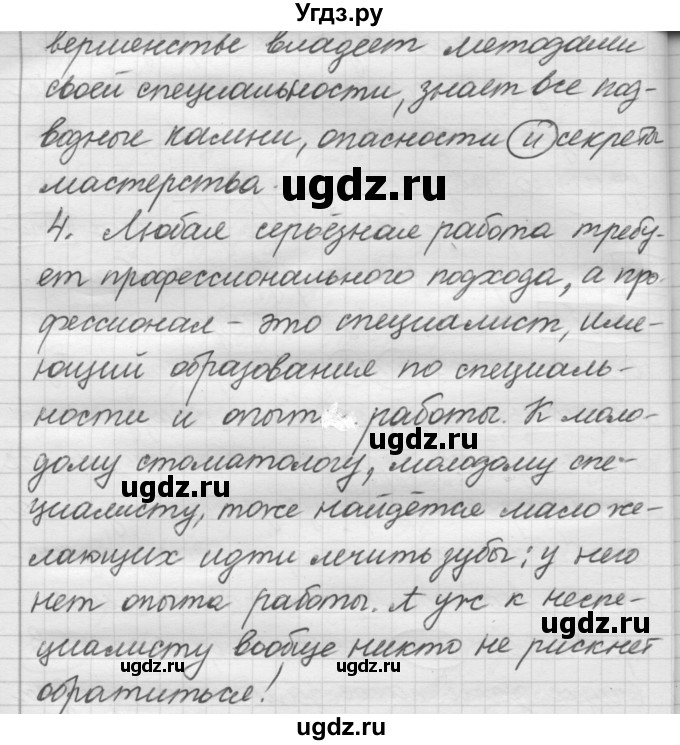 Угдз.ру
вершенстве владеет методами
своей специальности, знает все под-
водные камни, опасности и секреты
мастерства.
ugdz.ru
4. Любая серьёзная работа требу-
ет профессионального подхода, а про-
фессионал – это специалист, име-
ющий образование по специаль-
ности и опыт работы. К моло-
ugdz.ru
дому стоматологу, молодому спе-
ugdz.ru
циалисту, тоже найдётся мало же-
лающих идти лечить зубы: у него
нет опыта работы. А уж к неспе-
ugdz.ru
циалисту вообще никто не рискнёт
ugdz.ru ugdz.ru
обратиться!
ugdz.ru